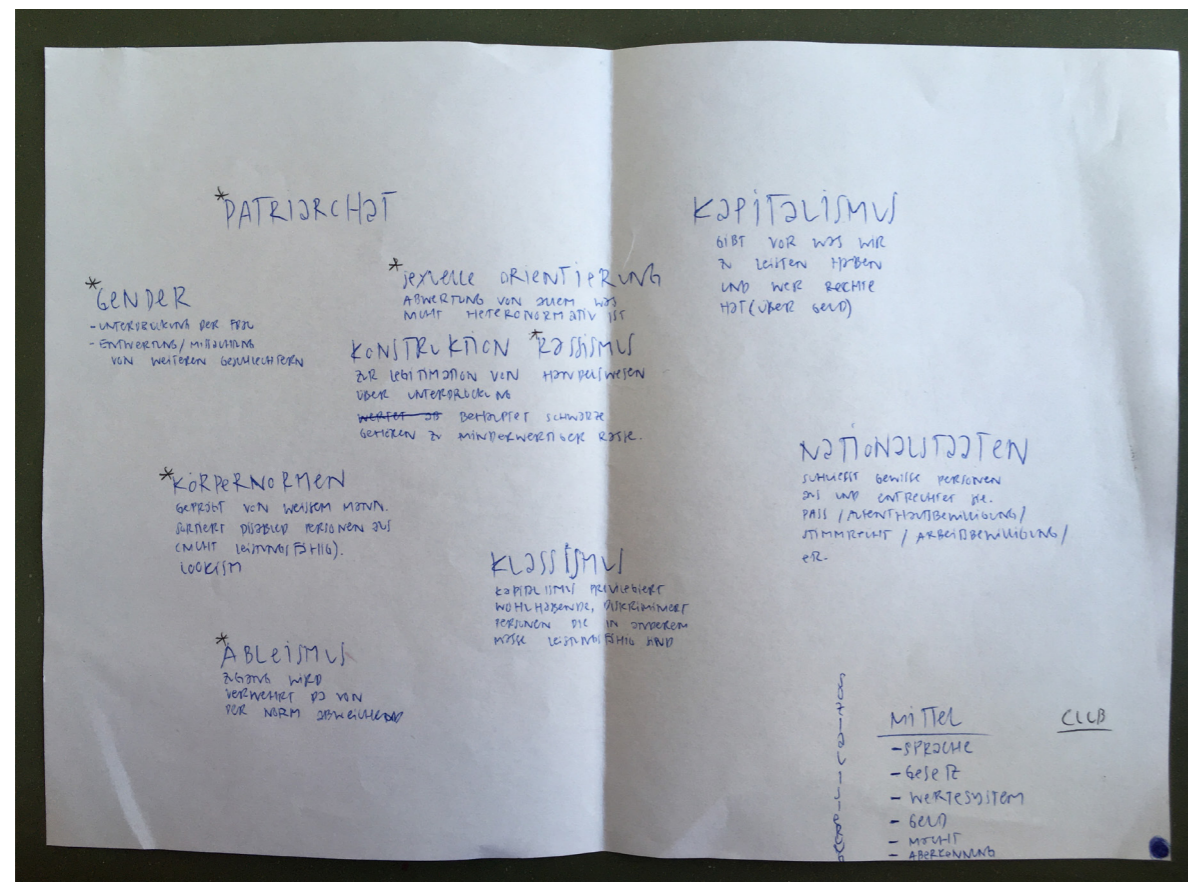 *PATRIARCHAT
*GENDER
- UNTERDRÜCKUNG DER FRAU
- ENTWERTUNG / MISSACHTUNG
VON WEITEREN GESCHLECHTERN
*SEXUELLE ORIENTIERUNG
ABWERTUNG VON ALLEM WAS
NICHT HETERONORMATIV IST
KONSTRUKTION *RASSISMUS
ZUR LEGITIMATION VON HANDELSWESEN
ÜBER UNTERDRÜCKUNG
BEHAUPTET SCHWARZE
GEHÖREN ZU MINDERWERTIGER RASSE.
*KÖRPERNORMEN
GEPRÄGT VON WEISSEM MANN.
SORTIERT DISABLED PERSONEN AUS
(NICHT LEISTUNGSFÄHIG).
LOOKISM
KLASSISMUS
KAPITALISMUS PRIVILEGIERT
WOHLHABENDE, DISKRIMINIERT
PERSONEN DIE IN ANDEREM
MASSE LEISTUNGSFÄHIG SIND
*ABLEISMUS
ZUGANG WIRD
VERWEHRT DA VON
DER NORM ABWEICHEND
KAPITALISMUS
GIBT VOR WAS WIR
ZU LEISTEN HABEN
UND WER RECHTE
HAT (ÜBER GELD)
NATIONALSTAATEN
SCHLIESST GEWISSE PERSONEN
AUS UND ENTRECHTET SIE.
PASS / AUFENTHALTSBEWILLIGUNG /
STIMMRECHT / ARBEITSBEWILLIGUNG /
ETC.
SOZIALISIERUNG
MITTEL
- SPRACHE
- GESETZ
- WERTESYSTEM
- GELD
- MACHT
- ABERKENNUNG